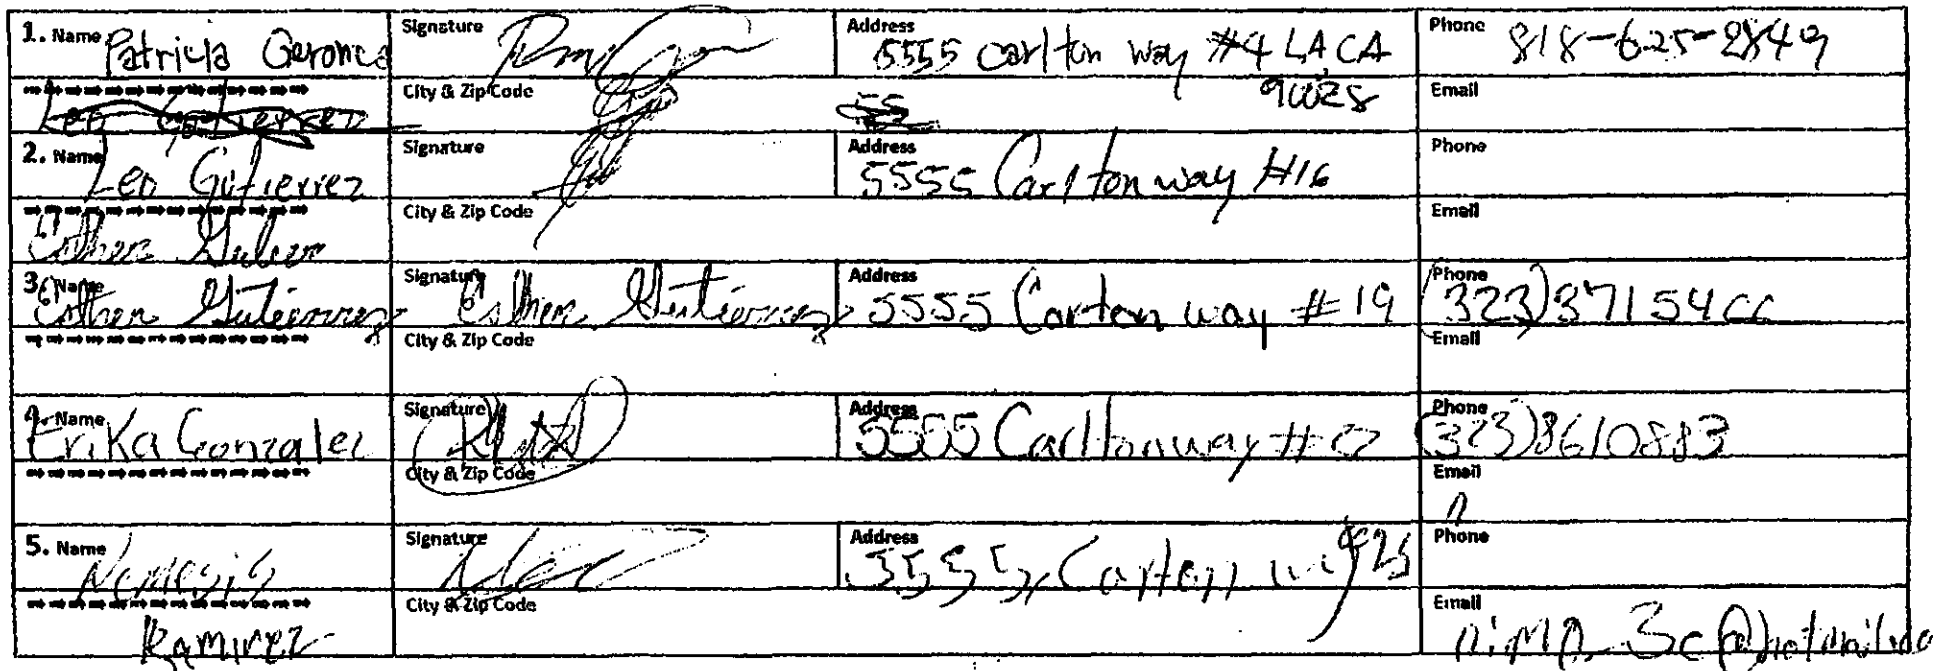 1. Name Patricia Geronca Signature Address 5555 Carlton way #4 LA CA Phone 818-625-2849
Leo Gutierrez City & Zip Code 90028 Email
55
2. Name Leo Gutierrez Signature Address 5555 Carlton way #16 Phone
City & Zip Code Email
Esther
3. Name Esther Gutierrez Signature Esther Gutierrez Address 5555 Carlton way #19 Phone (323)
City & Zip Code Email
4. Name Erika Gonzalez Signature Address 5555 Carlton way # Phone (323)8610883
City & Zip Code Email
5. Name Nemesis Signature Address 5555 Carlton Phone
City & Zip Code Email
Ramirez